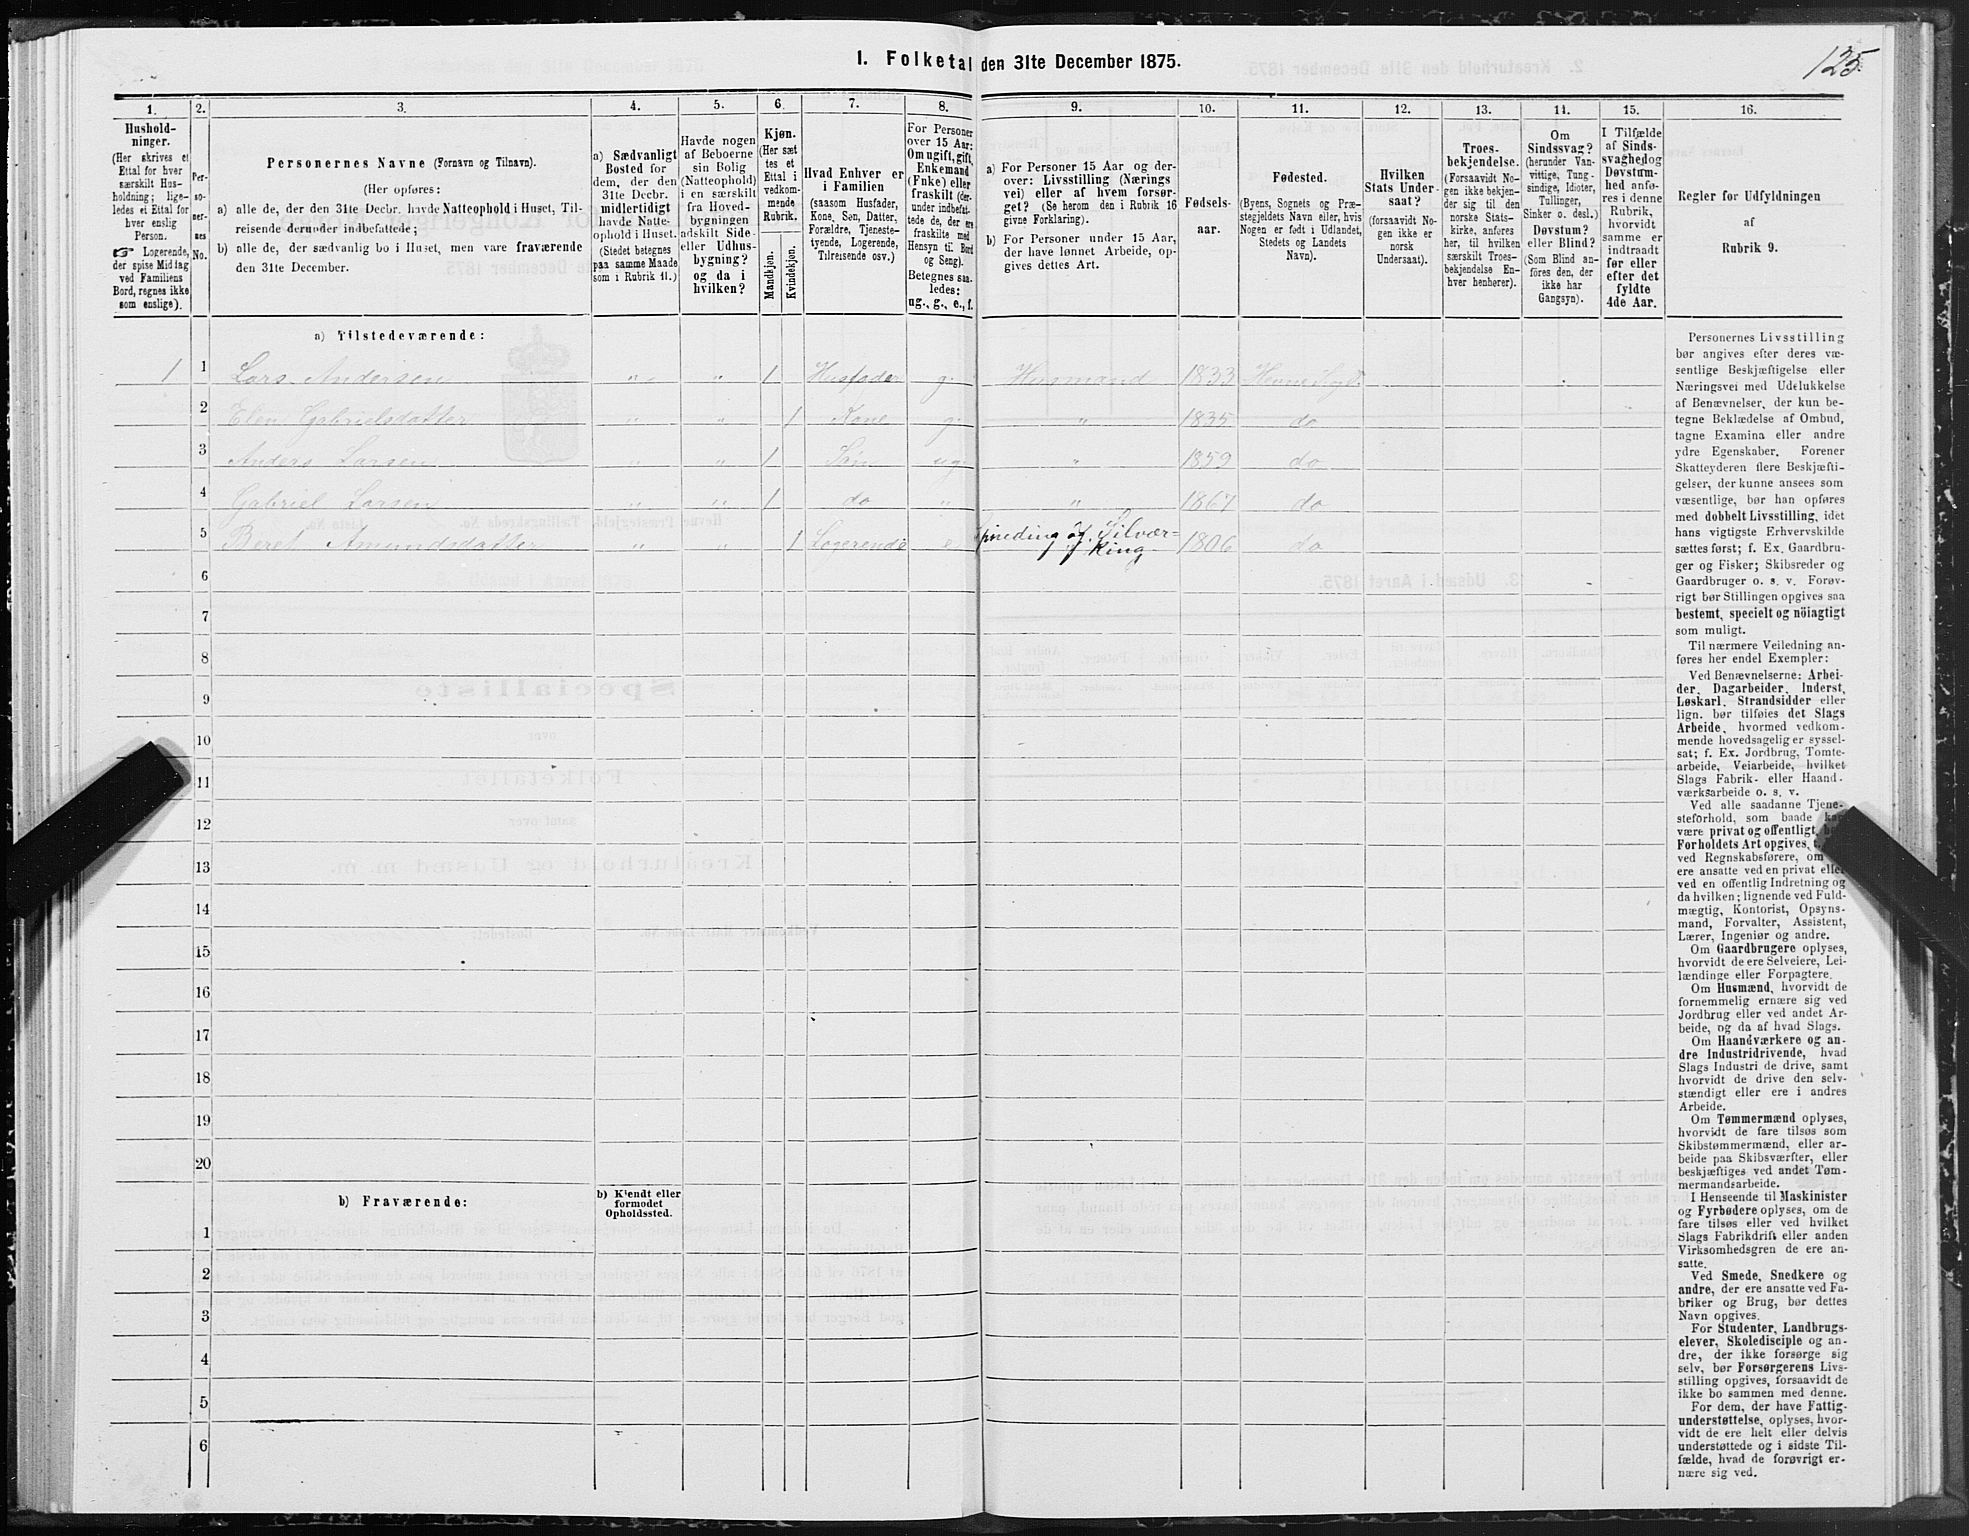 125.
1. Folketal den 31te December 1875.
1. 2. 3. 4. 5. 6. 7. 8. 9. 10. 11. 12. 13. 14. 15. 16.
Hushold-
ninger.
(Her skrives et
Ettal for hver
særskilt Hus-
holdning; lige-
ledes et Ettal for
hver enslig
Person.
☞ Logerende,
der spise Middag
ved Familiens
Bord, regnes ikke
som enslige).
Per-
so-
ner-
nes
No.
Personernes Navne (Fornavn og Tilnavn).
(Her opføres:
a) alle de, der den 31te Decbr. havde Natteophold i Huset, Til-
reisende derunder indbefattede;
b) alle de, der sædvanlig bo i Huset, men vare fraværende
den 31te December.
a) Sædvanligt
Bosted for
dem, der den
31te Decbr.
midlertidigt
havde Natte-
ophold i Huset.
(Stedet betegnes
paa samme Maade
som i Rubrik 11.)
Havde nogen
af Beboerne
sin Bolig
(Natteophold)
i en særskilt
fra Hoved-
bygningen
adskilt Side-
eller Udhus-
bygning?
og da i
hvilken?
Kjøn.
(Her sæt
tes et
Ettal i
vedkom-
mende
Rubrik.
Mandkjøn.
Kvindekjøn.
Hvad Enhver er
i Familien
(saasom Husfader,
Kone, Søn, Datter,
Forældre, Tjeneste-
tyende, Logerende,
Tilreisende osv.)
For Personer
over 15 Aar:
Om ugift, gift,
Enkemand
(Enke) eller
fraskilt (der-
under indbefat-
tede de, der ere
fraskilte med
Hensyn til Bord
og Seng).
Betegnes saa-
ledes:
ug., g., e., f.
a) For Personer 15 Aar og der-
over: Livsstilling (Nærings
vei) eller af hvem forsør-
get? (Se herom den i Rubrik 16
givne Forklaring).
b) For Personer under 15 Aar,
der have lønnet Arbeide, op-
gives dettes Art.
Fødsels-
aar.
Fødested.
(Byens, Sognets og Præ-
stegjeldets Navn eller, hvis
Nogen er født i Udlandet,
Stedets og Landets
Navn).
Hvilken
Stats Under-
saat?
(forsaavidt No-
gen ikke er
norsk
Undersaat).
Troes-
bekjendelse.
(Forsaavidt No-
gen ikke bekjen-
der sig til den
norske Stats-
kirke, anføres
her, til hvilken
særskilt Troes-
bekjendelse En-
hver henhører).
Om
Sindssvag?
(herunder Van-
vittige, Tung-
sindige, Idioter,
Tullinger,
Sinker o. desl.)
Døvstum?
eller Blind?
(Som Blind an-
føres den, der
ikke har
Gangsyn).
I Tilfælde
af Sinds-
svaghed og
Døvstum-
hed anfø-
res i denne
Rubrik,
hvorvidt
samme er
indtraadt
før eller
efter det
fyldte
4de Aar.
Regler for Udfyldningen
af
Rubrik 9.
a) Tilstedeværende:
1 1 Lars Andersen " " 1 Husfader g. Husmand 1833 Hevne Prgl.
2 Elen Gabrielsdatter " " 1 Kone g. " 1835 do
3 Anders Larsen " " 1 Søn ug. " 1859 do
4 Gabriel Larsen " " 1 do " " 1867 do
5 Beret Amundsdatter " " 1 Logerende e Spineding og Tilvær=
King 1806 do
6
7
8
9
10
11
12
13
14
15
16
17
18
19
20
b) Fraværende:
b) Kjendt eller
formodet
Opholdssted.
1
2
3
4
5
6
Personernes Livsstilling
bør angives efter deres væ-
sentlige Beskjæftigelse eller
Næringsvei med Udelukkelse
af Benævnelser, der kun be-
tegne Beklædelse af Ombud,
tagne Examina eller andre
ydre Egenskaber. Forener
Skatteyderen flere Beskjæfti-
gelser, der kunne ansees som
væsentlige, bør han opføres
med dobbelt Livsstilling, idet
hans vigtigste Erhvervskilde
sættes først; f. Ex. Gaardbru-
ger og Fisker; Skibsreder og
Gaardbruger o. s. v. Forøv-
rigt bør Stillingen opgives saa
bestemt, specielt og nöiagtigt
som muligt.
Til nærmere Veiledning an-
føres her endel Exempler:
Ved Benævnelserne: Arbei-
der, Dagarbeider, Inderst,
Løskarl, Strandsidder eller
lign. bør tilføies det Slags
Arbeide, hvormed vedkom-
mende hovedsagelig er syssel-
sat; f. Ex. Jordbrug, Tomte-
arbeide, Veiarbeide, hvilket
Slags Fabrik- eller Haand-
værksarbeide o. s. v.
Ved alle saadanne Tjene-
steforhold, som baade
være privat og offentligt,
Forholdets Art opgives,
ved Regnskabsførere, om
ere ansatte ved en privat eller
ved en offentlig Indretning og
da hvilken; lignende ved Fuld-
mægtig, Kontorist, Opsyns-
mand, Forvalter, Assistent,
Lærer, Ingeniør og andre.
Om Gaardbrugere oplyses,
hvorvidt de ere Selveiere, Lei-
lændinge eller Forpagtere.
Om Husmænd, hvorvidt de
fornemmelig ernære sig ved
Jordbrug eller ved andet Ar-
beide, og da af hvad Slags.
Om Haandværkere og an-
dre Industridrivende, hvad
Slags Industri de drive, samt
hvorvidt de drive den selv-
stændigt eller ere i andres
Arbeide.
Om Tømmermænd oplyses,
hvorvidt de fare tilsøs som
Skibstømmermænd, eller ar-
beide paa Skibsværfter, eller
beskjæftiges ved andet Tøm-
mermandsarbeide.
I Henseende til Maskinister
og Fyrbødere oplyses, om de
fare tilsøs eller ved hvilket
Slags Fabrikdrift eller anden
Virksomhedsgren de ere an-
satte.
Ved Smede, Snedkere og
andre, der ere ansatte ved Fa-
briker og Brug, bør dettes
Navn opgives.
For Studenter, Landbrugs-
elever, Skoledisciple og an-
dre, der ikke forsørge sig
selv, bør Forsørgerens Livs-
stilling opgives, forsaavidt de
ikke bo sammen med denne.
For dem, der have Fattig-
understøttelse, oplyses, hvor-
vidt de ere helt eller delvis
understøttede og i sidste Til-
fælde, hvad de forøvrigt er-
nære sig ved.